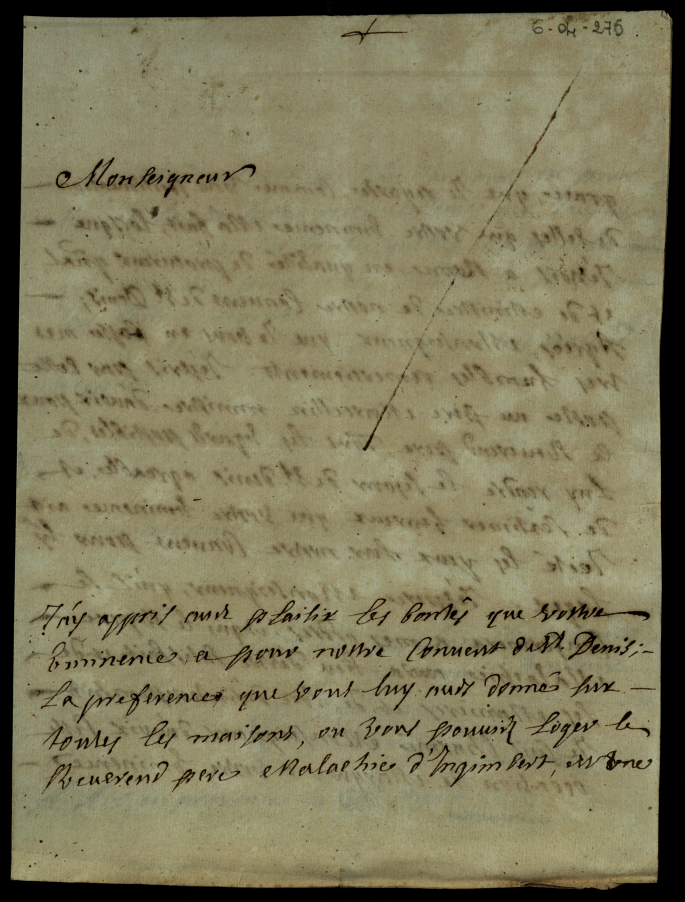 6-04-276
Monseigneur
J'ay appris avec plaisir les bontés que vostre
Eminence a pour nostre Convent de St. Denis;
La preference que vous luy avez donné sur
toutes les maisons, ou vous pouviez loger le
Reverend pere Malachie d'Inguimbert, est une